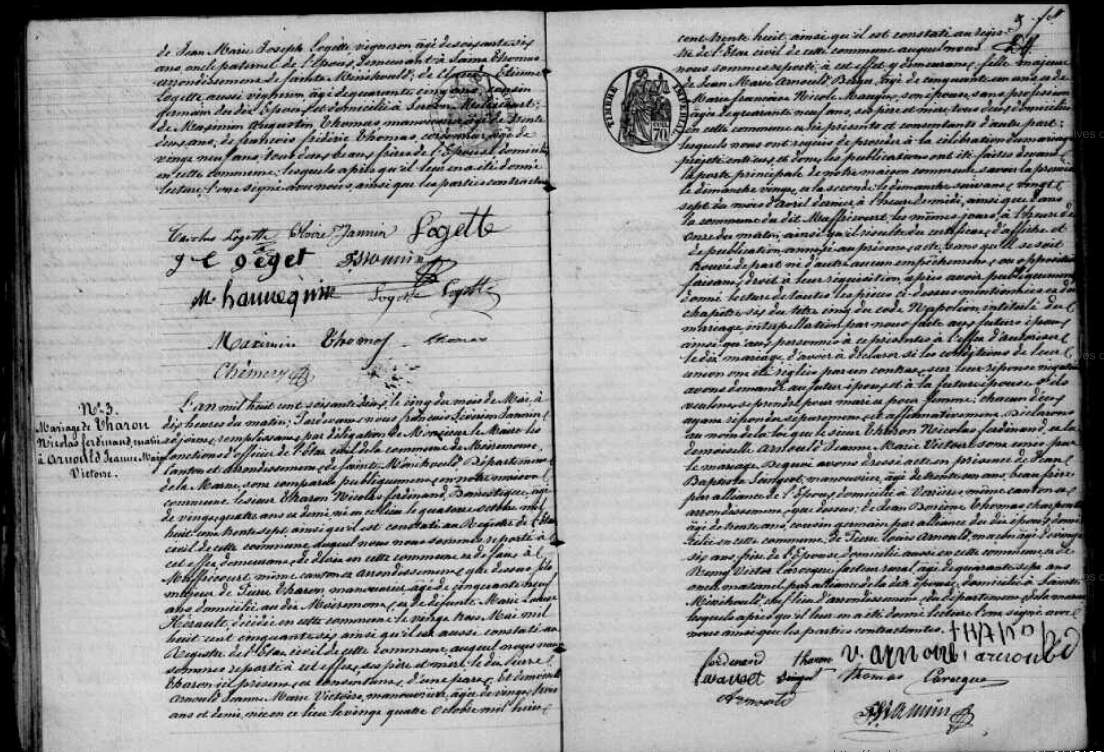 de Jean Marie Joseph Logette vigneron âgé de soixante six
ans, oncle paternel de l'Epoux, demeurant à Saint Thomas
arrondissement de Sainte Ménéhould; de Etienne
Logette aussi vigneron âgé de quarante cinq ans, cousin
germain du dit Epoux, et domicilié à Servon Melzicourt;
de Maximin Augustin Thomas manouvrier, âgé de trente
deux ans, de françois fédéric Thomas, cordonnier, âgé de
vingt neuf ans, tous deux beaux frères de l'Epouse, domiciliés
en cette commune; lesquels après qu'il leur en a été donné
lecture l'ont signé avec nous, ainsi que les parties contractantes
Logette Jannin Logette
Jannin
M hannequin Logette Logette
Maximin Thomas Thomas
Chémery
N° 3.
Mariage de Tharon
Nicolas ferdinand, marié
à Arnould Jeanne Marie
Victoire.
L'an mil huit cent soixante deux, le cinq du mois de Mai, à
dix heures du matin; Pardevant nous françois Séverin Jannin
adjoint, remplissant par délégation de Monsieur le Maire les
fonctions d'officier de l'Etat civil de la commune de Moiremont,
Canton et arrondissement de Sainte Ménéhould, Département
de la Marne, sont comparus publiquement en notre maison
commune le sieur Tharon Nicolas ferdinand, Domestique, âgé
de vingt quatre ans et demi, né en ce lieu le quatorze octobre mil
huit cent trente sept, ainsi qu'il est constaté au Registre de l'Etat
civil de cette commune auquel nous nous sommes reporté à
cet effet, demeurant de droit en cette commune et de fait à
Maffrécourt, même canton et arrondissement que dessus, fils
majeur de Pierre Tharon manouvrier âgé de cinquante neuf
ans domicilié au dit Moiremont, et de défunte Marie Louise
Hérault, décédée en cette commune le vingt trois Mai mil
huit cent cinquante six ainsi qu'il est aussi constaté au
Registre de l'Etat civil de cette Commune, auquel nous nous
sommes reporté à cet effet, ses père et mère, le dit Pierre
Tharon ici présent et consentant, d'une part; Et demoiselle
Arnould Jeanne Marie Victoire, manouvrière, âgée de vingt trois
ans et demi, née en ce lieu le vingt quatre Octobre mil huit
TIMBRE IMPÉRIAL
cent trente huit, ainsi qu'il est constaté au régis-
tre de l'Etat civil de cette commune auquel nous
nous sommes reporté à cet effet, y demeurant, fille majeure
de Jean Marie Arnould, âgé de cinquante un ans et de
Marie françoise Nicole Mangin, son épouse sans profession
âgée de quarante neuf ans, ses père et mère, tous deux domiciliés
en cette commune et ici présents et consentants d'autre part;
lesquels nous ont requis de procéder à la célébration du mariage
projeté entr'eux et dont les publications ont été faites devant
la porte principale de notre maison commune savoir la première
le dimanche vingt, et la seconde le dimanche suivant vingt
sept du mois d'Avril dernier, à l'heure de midi, ainsi que dans
la commune du dit Maffrécourt, les mêmes jours, à l'heure de
onze du matin, ainsi qu'il résulte du certificat d'affiche et
de publication, annexé au présent acte, sans qu'il se soit
trouvé de part ni d'autre aucun empêchement ou opposition
faisant droit à leur réquisition, après avoir publiquement
donné lecture de toutes les pièces ci-dessus mentionnées et du
chapitre six du titre cinq du code Napoléon intitulé du
mariage, interpellation par nous faite aux futurs époux
ainsi qu'aux personnes à ce présentes à l'effet d'autoriser
le dit mariage, d'avoir à déclarer si les conditions de leur
union ont été réglées par un contrat, sur leur réponse négative
avons demandé au futur époux et à la future épouse s'ils
veulent se prendre pour mari et pour femme; chacun d'eux
ayant répondu séparément et affirmativement, Déclarons
au nom de la loi que le sieur Tharon Nicolas ferdinand, et la
demoiselle Arnould Jeanne Marie Victoire sont unis par
le mariage. De quoi avons dressé acte en présence de Jean
Baptiste, manouvrier, âgé de trente ans, beau frère
par alliance de l'Epoux, domicilié à Verrières, même canton et
arrondissement que dessus; de Jean Thomas charpentier
âgé de trente ans, cousin germain par alliance du dit époux, domi-
cilié en cette commune, de Pierre Louis Arnould, maçon âgé de vingt
six ans, frère de l'Epouse, domicilié aussi en cette commune, et de
Remy Victor Laroque, facteur rural âgé de quarante sept ans
oncle maternel par alliance de la dite épouse, domicilié à Sainte
Ménéhould, chef lieu d'arrondissement, du département de la Marne
lesquels après qu'il leur en a été donné lecture l'ont signé avec
nous ainsi que les parties contractantes.
ferdinand tharon V. arnould arnould
Thomas Laroque
Arnould
Jannin